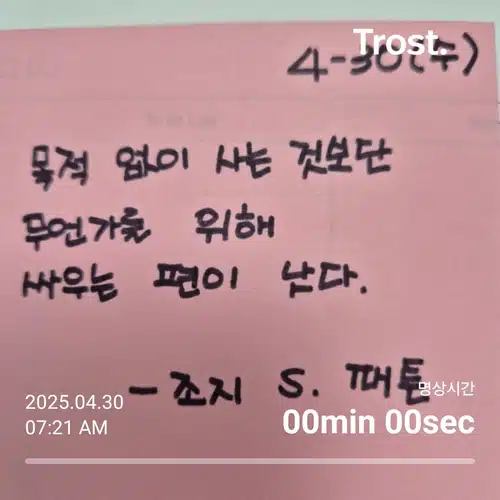 Trost.
4-30(수)
목적 없이 사는 것보단
무언가를 위해
싸우는 편이 낫다.
- 조지 S. 패튼
명상시간
2025.04.30
00min 00sec
07:21 AM